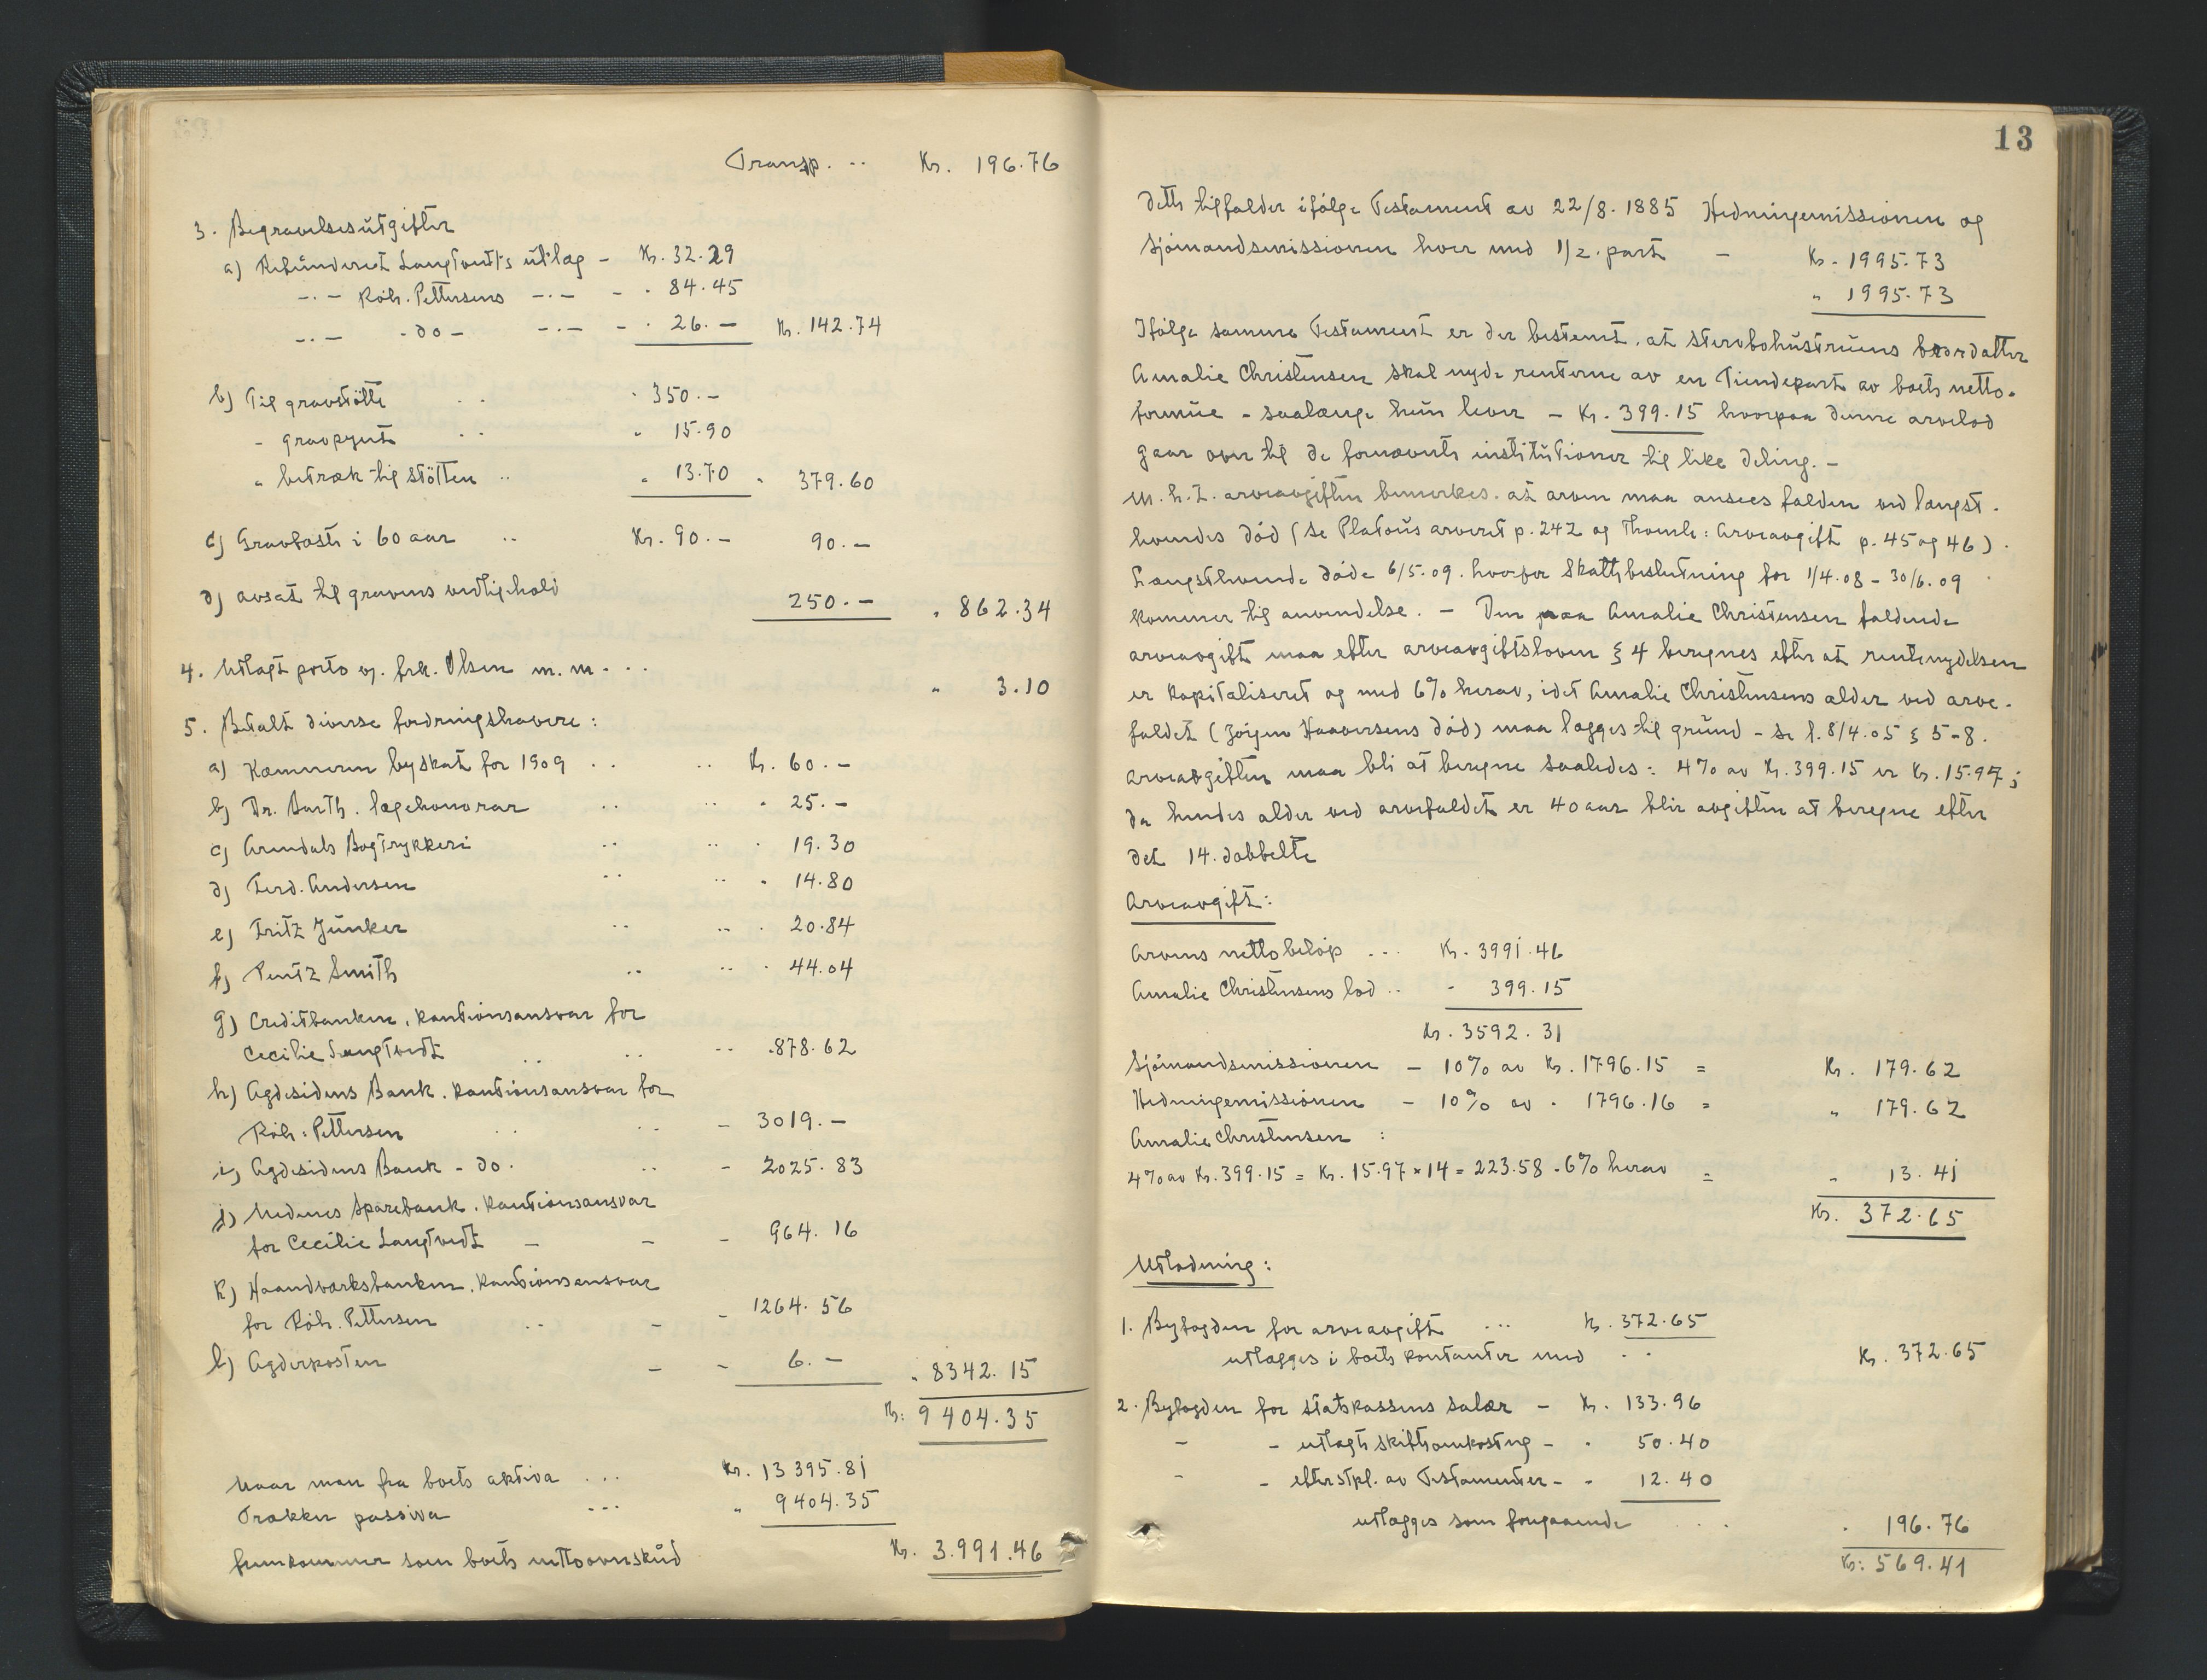 Transp. .. Kr. 196.76
3. Begravelsesutgifter
a) Refunderet Langtvedt's utlæg - Kr. 32.29
-.- Röhr. Pettersens -.- - . 84.45
-.- - do - -.- - . 26.- Kr. 142.74
b) Til gravstötte .. . 350.-
- gravpynt .. " 15.90
" betræk til stötten .. " 13.70 " 379.60
c) Gravfæste i 60 aar .. Kr. 90.- 90.-
d) avsat til gravens vedlikehold 250.- " 862.34
4. Utlagt porto vj. frk. Olsen m.m. ... " 3.10
5. Betalt diverse fordringshavere:
a) Kæmneren byskat for 1909 .. .. Kr. 60.-
b) Dr. Barth. lægehonorar .. .. " 25.-
c) Arendals Bogtrykkeri .. .. . 19.30
d) Ferd. Andersen .. .. " 14.80
e) Fritz Junker .. .. . 20.84
f) Pentz Smith .. .. . 44.04
g) Creditbanken, kautionsansvar for
Cecilie Langtvedt .. .. .. . 878.62
h) Agdesidens Bank. kautionsansvar for
Röhr. Pettersen .. .. - 3019.-
i) Agdesidens Bank - do. .. - 2025.83
j) Nedenes Sparebank. kautionsansvar
for Cecilie Langtvedt - - - 964.16
k) Haandværksbanken. kautionsansvar
for Röhr. Pettersen .. - - 1264.56
l) Agderposten - - 6.- " 8342.15
Kr: 9404.35
Naar man fra boets aktiva ... Kr. 13395.81
Trækker passiva ... " 9404.35
fremkommer som boets nettooverskud Kr. 3.991.46
13
Dette tilfalder ifölge Testament av 22/8. 1885 Hedningemissionen og
Sjömandsmissionen hver med 1/2. part - Kr. 1995.73
" 1995.73
Ifölge samme Testament er der bestemt, at stervbohustruens brordatter
Amalie Christensen skal nyde renterne av en Tiendepart av boets netto-
formue - saalænge hun lever - Kr. 399.15 hvorpaa denne arvelod
gaar over til de fornævnte institutioner til like deling. -
M. h. t. arveavgiften bemerkes. at arven maa ansees falden ved længst-
levendes död (se Platous arveret p. 242 og Thomle: Arveavgift p. 45 og 46).
Længstlevende döde 6/5.09. hvorfor Skattebeslutning for 1/4.08 - 30/6.09
kommer til anvendelse. - Den paa Amalie Christensen faldende
arveavgift maa efter arveavgiftsloven § 4 beregnes efter at rentenydelsen
er kapitaliseret og med 6% herav, idet Amalie Christensens alder ved arve-
faldet (Jörgen Haaversens död) maa lægges til grund - se l. 8/4.05 § 5-8.
Arveavgiften maa bli at beregne saaledes: 4% av Kr. 399.15 er Kr. 15.97;
da hendes alder ved arvefaldet er 40 aar blir avgiften at beregne efter
det 14. dobbelte
Arveavgift:
Arvens nettobelöp ... Kr. 3991.46
Amalie Christensens lod .. - 399.15
Kr. 3592.31
Sjömandsmissionen - 10% av Kr. 1796.15 = Kr. 179.62
Hedningemissionen - 10% av " 1796.16 = " 179.62
Amalie Christensen :
4% av Kr. 399.15 = Kr. 15.97 × 14 = 223.58 - 6% herav = " 13.41
Kr. 372.65
Utlodning:
1. Byfogden for arveavgift ... Kr. 372.65
utlægges i boets kontanter med .. Kr. 372.65
2. Byfogden for statskassens salær - Kr. 133.96
- - utlagte skifteomkostng - . 50.40
- - efterstpl. av Testamenter - - 12.40
utlægges som foregaaende ... . 196.76
Kr: 569.41